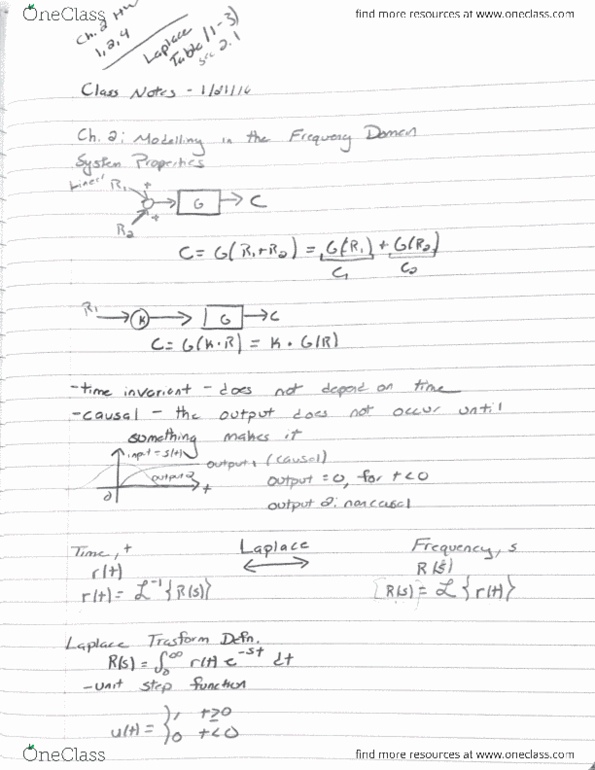 OneClass
find more resources at www.oneclass.com
Ch. 2 HW
1, 2, 4
Laplace
Table (1-3)
sec 2.1
Class Notes - 1/21/16
Ch. 2: Modelling in the Frequency Domain
System Properties
Linear R1 +
G C
R2 +
C = G(R1+R2) = G(R1) + G(R2)
C1 C2
R1 K G C
C = G(K·R) = K · G(R)
-time invarient - does not depend on time
-causal - the output does not occur until
something makes it
input = δ(t)
output 1 (causal)
output 2
output = 0, for t<0
0 t
output 2: noncausal
Time, t Laplace Frequency, s
r(t) R(s)
r(t) = ℒ⁻¹{R(s)} R(s) = ℒ{r(t)}
Laplace Trasform Defn.
R(s) = ∫₀^∞ r(t) e^-st dt
-unit step function
u(t) = { 1, t≥0
0 t<0
OneClass
find more resources at www.oneclass.com